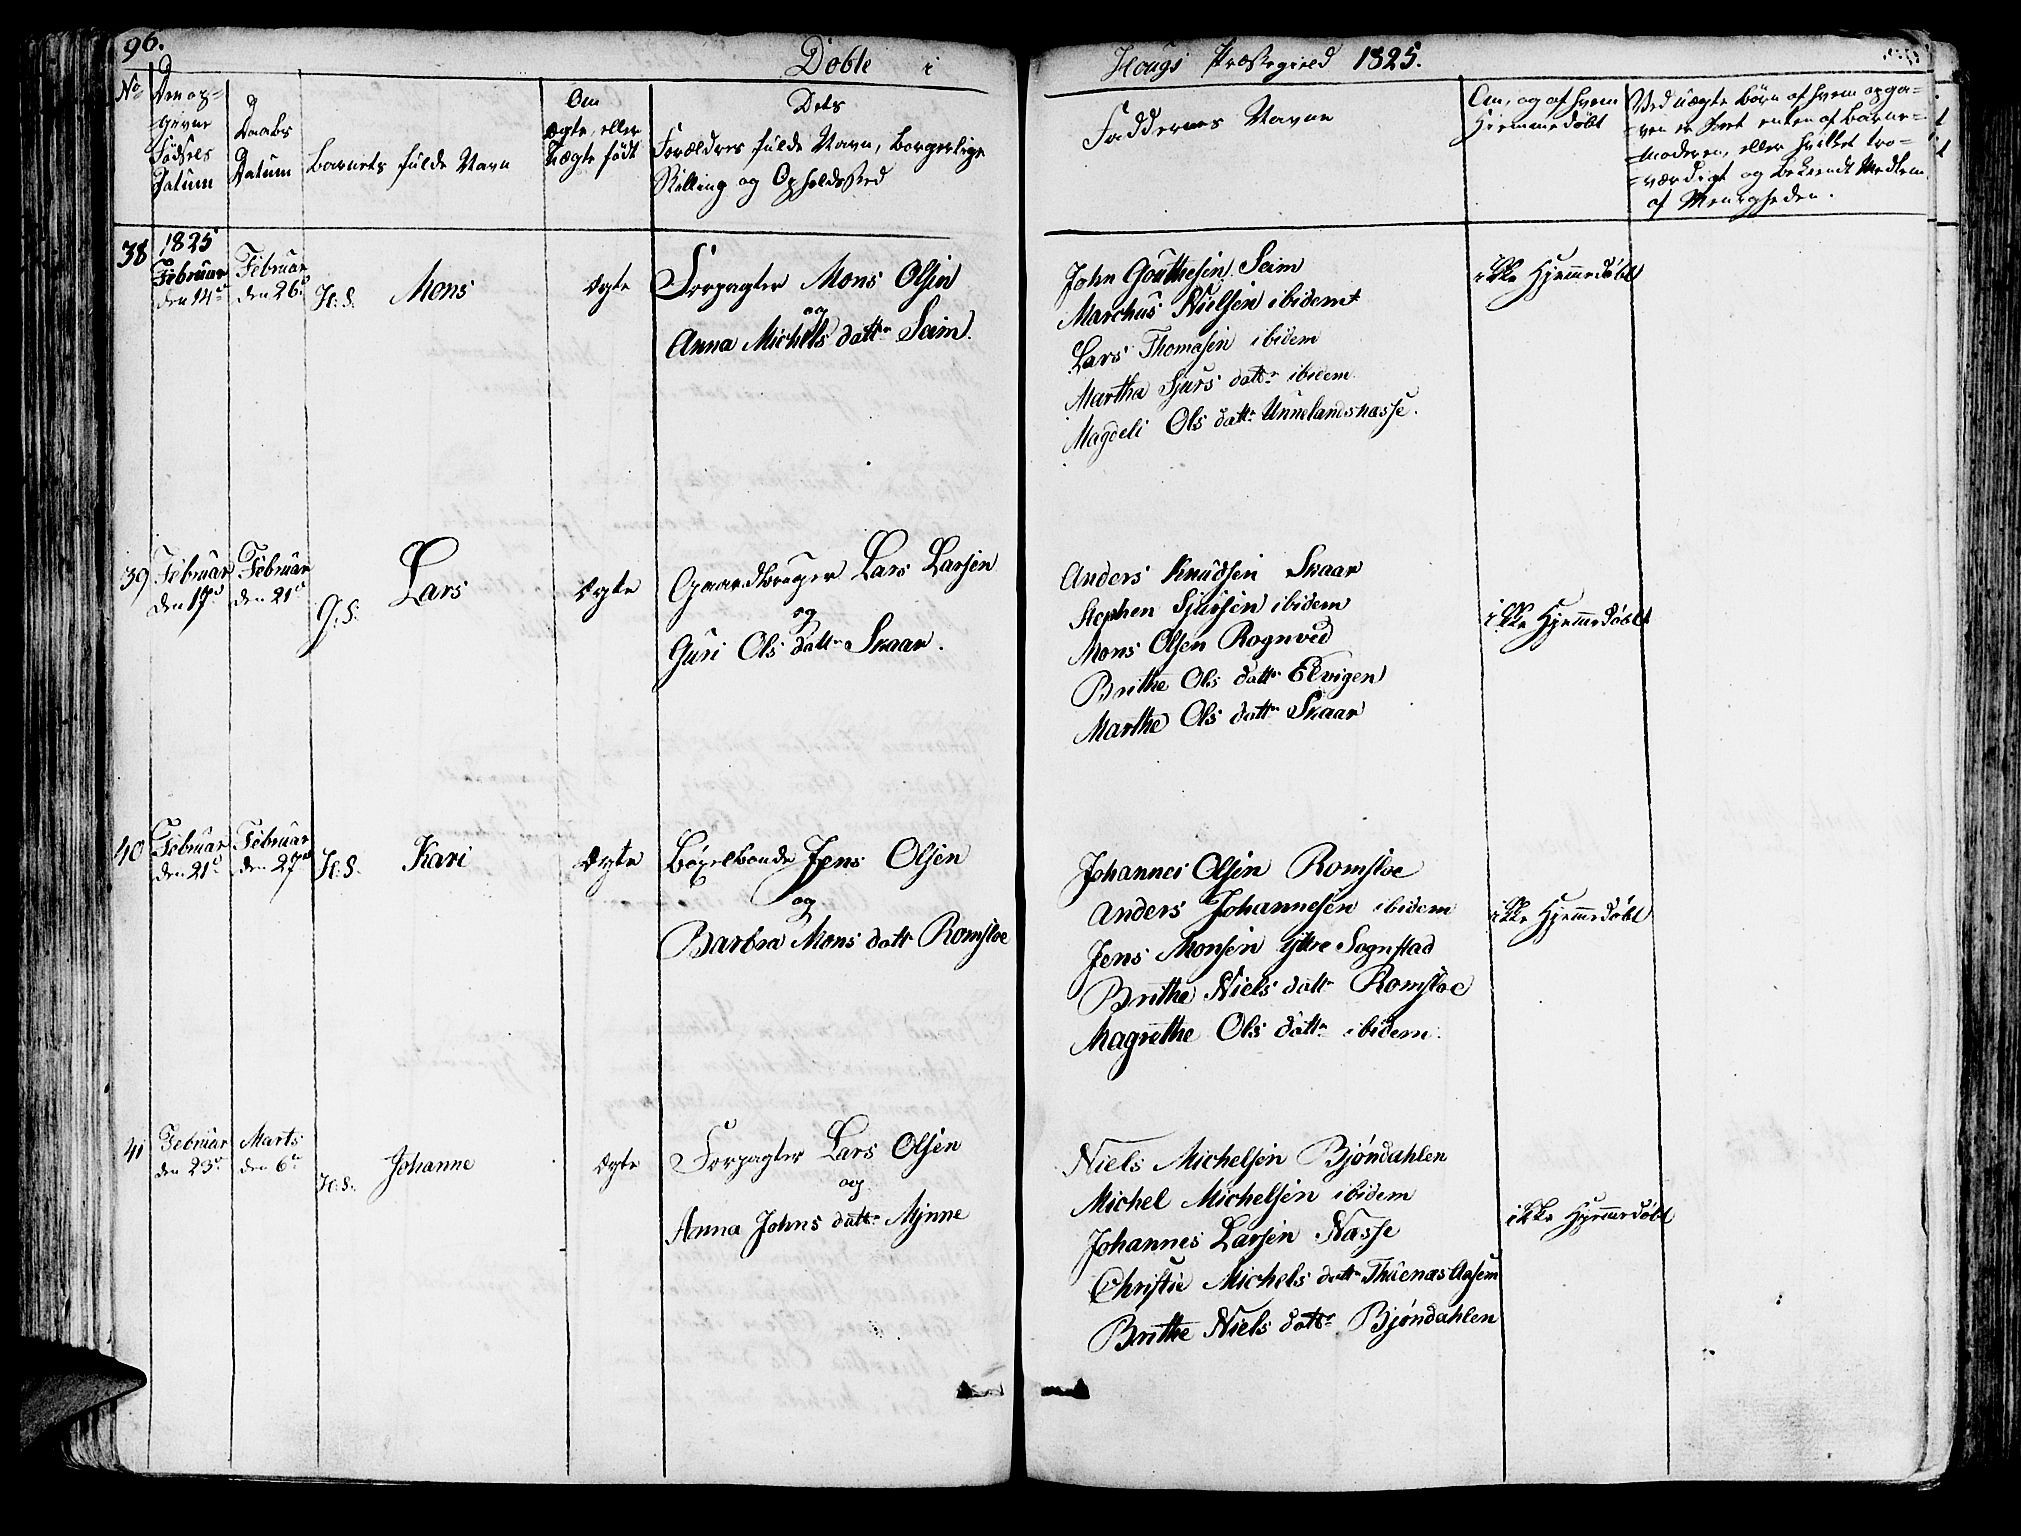 96.
Døbte i
Hougs Præstegield 1825.
No
Den op-
givne
Fødsels
Datum
Daabs
Datum
Barnets fulde Navn
Om
ægte, eller
Uægte født
Dets
Forældres fulde Navn, borgerlige
Stilling og Opholdssted
Faddernes Navne
Om, og af hvem
Hiemmedøbt
Ved uægte Børn af hvem opga-
ven er skeet enten af Barne-
moderen, eller hvilket tro-
værdigt og bekiendt Medlem
af Menigheden.
38
1825
Februar
den 14de
Februar
den 26d
H: S.
Mons
ægte
Forpagter Mons Olsen
og
Anna Michels dattr Seim.
John Gouthesen Seim
Marchus Nielsen ibidem
Lars Thomasen ibidem
Martha Sjurs dattr ibidem
Magdeli Ols dattr Unnelandsnasse.
ikke Hjemmedøbt
39
Februar
den 17d
Februar
den 21d
G: S.
Lars
ægte
Gaardbruger Lars Larsen
og
Guri Ols dattr Skaar.
Anders Knudsen Skaar
Stephen Sjursen ibidem
Mons Olsen Rognved
Brithe Ols dattr Elvigen
Marthe Ols dattr Skaar
ikke Hjemmedøbt
40
Februar
den 21d
Februar
den 27d
H: S.
Kari
ægte
Bøxelbonde Jens Olsen
og
Barbra Mons dattr Romsloe
Johannes Olsen Romsloe
Anders Johannesen ibidem
Jens Monsen Ijttre Sognstad
Brithe Niels dattr Romsloe
Magrethe Ols dattr ibidem.
ikke Hjemmedøbt
41
Februar
den 23d
Marts
den 6te
H: S.
Johanne
ægte
Forpagter Lars Olsen
og
Anna Johns dattr Mjnne
Niels Michelsen Bjøndahlen
Michel Michelsen ibidem
Johannes Larsen Nasse
Christie Michels dattr Thuenæs Aasem
Brithe Niels dattr Bjøndahlen
ikke Hjemmedøbt